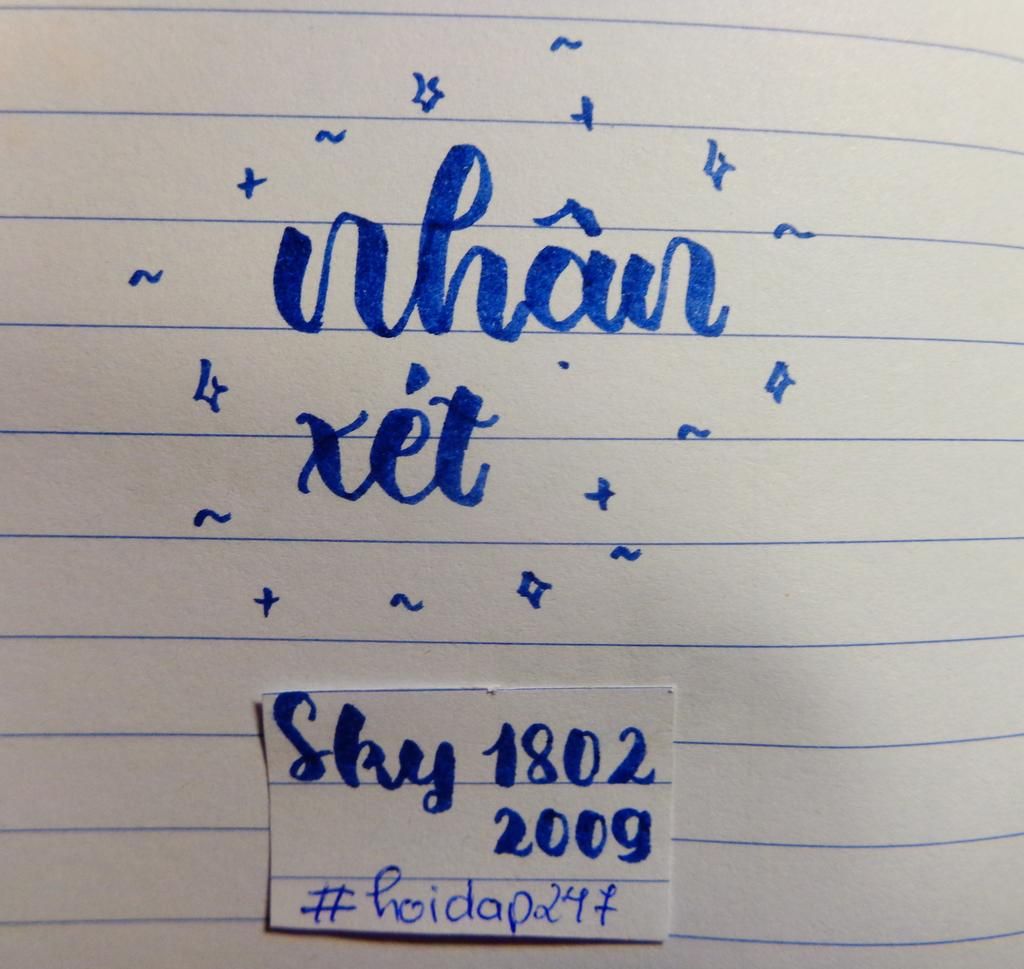 nhân
xét
Sky 1802
2009
#hoidap247